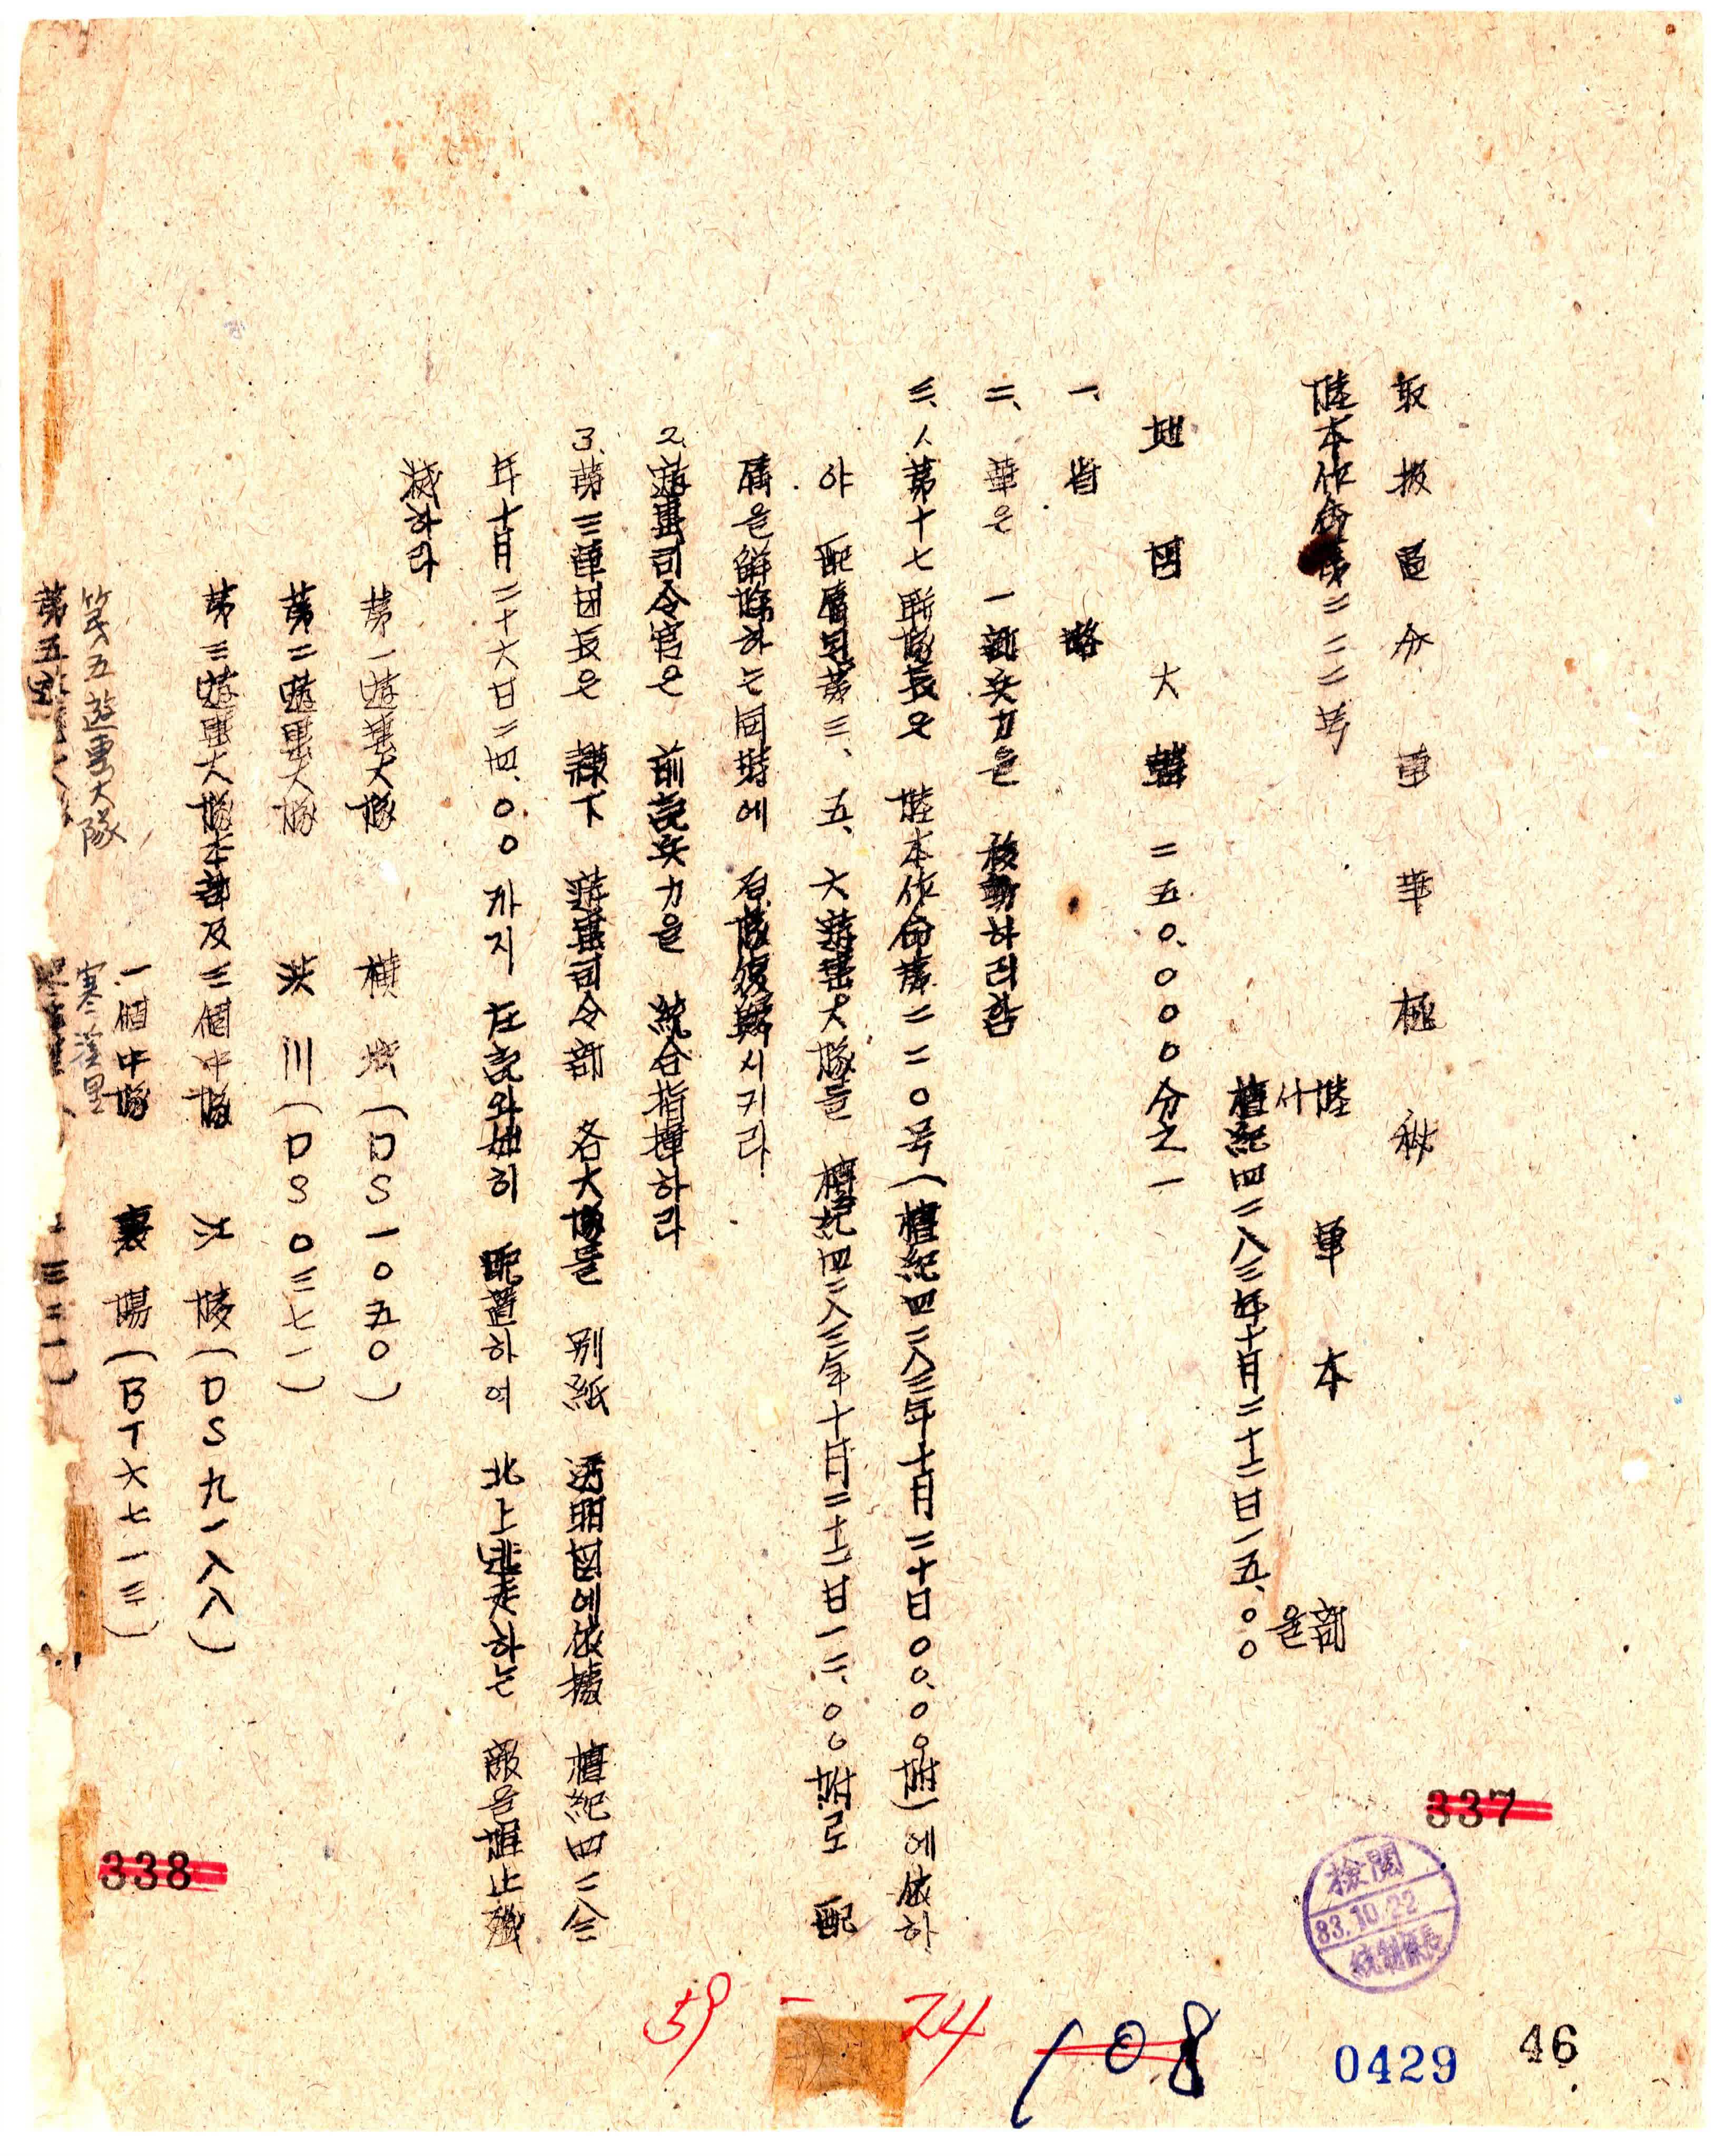 取扱區分 軍事極秘
陸本作命第二二二号
陸軍本部
什 을
檀紀四二八三年十月二十二日一五.〇〇
地図 大韓 二五〇.〇〇〇分之一
一、省略
二、軍은 一部兵力을 移動하려함
三、1、第十七聯隊長은 陸本作命第二二〇号(檀紀四二八三年十月二十日〇〇.〇〇附)에依하
야 配屬된第三、五、大遊擊大隊를 檀紀四二八三年十月二十二日一二.〇〇附로 配
屬을解除하는同時에 原隊復歸시키라
2、遊擊司令官은 前記兵力을 統合指揮하라
3、第三軍団長은 隷下 遊擊司令部 各大隊를 別紙 透明図에依據 檀紀四二八三
年十月二十六日二四.〇〇까지 左記와如히 配置하여 北上逃走하는 敵을捉止殲
滅하라
第一遊擊大隊 橫城(DS一〇五〇)
第二遊擊大隊 洪川(DS〇三七一)
第三遊擊大隊本部及三個中隊 江陵(DS九一八八)
一個中隊 襄陽(BT六七一三)
第五遊擊大隊 寒溪里
第五 三二一)
337
338
檢閱
83.10.22
統制係長
59 - 24
108
0429
46